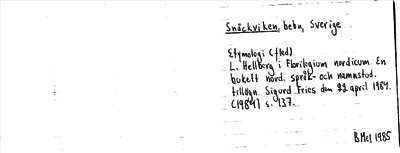 Snäckviken, bebn, Sverige
Etymologi (fled)
L. Hellberg i Florilegium nordicum. En
bukett nord. språk- och namnstud.
tillägn. Sigurd Fries den 22 april 1984.
(1984) s. 137.
BMel 1985